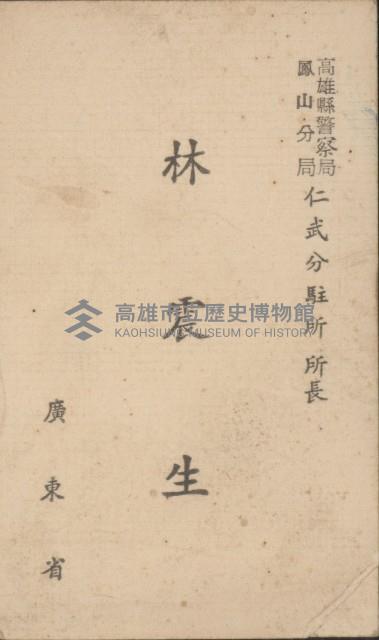 高雄縣警察局
鳳山分局
仁武分駐所所長
林震生
廣東省
高雄市立歷史博物館
KAOHSIUNG MUSEUM OF HISTORY